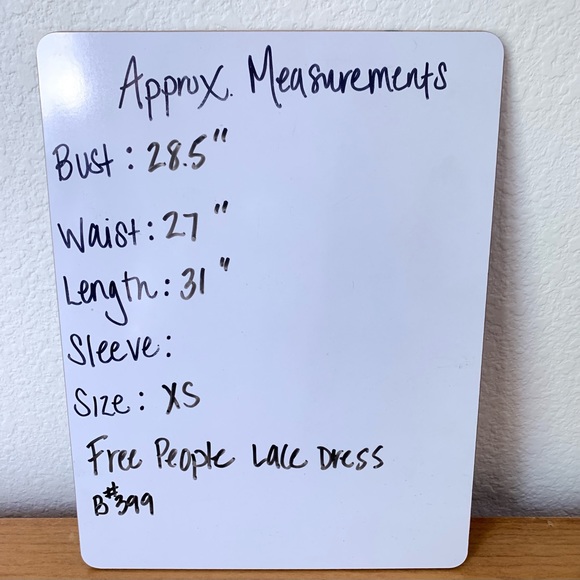 Approx. Measurements
Bust: 28.5"
Waist: 27"
Length: 31"
Sleeve:
Size: XS
Free People Lace Dress
B#399